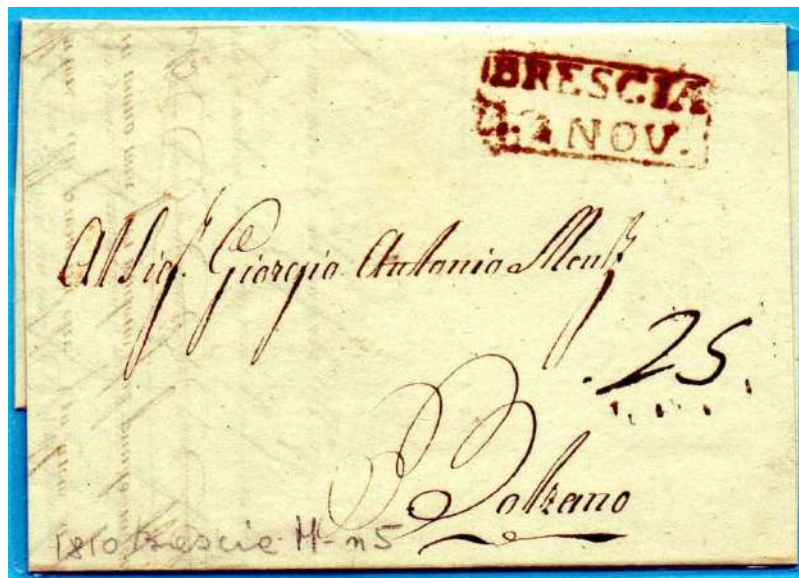 BRESCIA
2 NOV.
Al Sig.r Giorgio Antonio Menz
.25
Bolzano
1810 Brescia n5